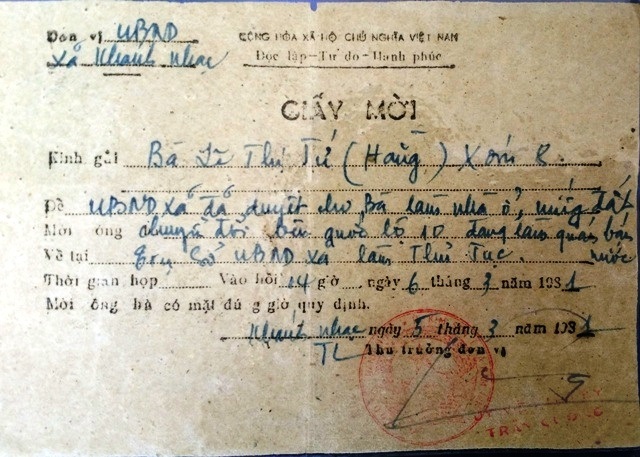 Đơn vị UBND
CỘNG HÒA XÃ HỘ CHỦ NGHĨA VIỆT NAM
Xã Khánh Nhạc
Độc lập-Tự do-Hạnh phúc
GIẤY MỜI
Kính gửi Bà Lê Thị Tứ (Hoằng) Xóm 8
Đề UBND xã đã duyệt cho Bà làm nhà ở, miếng đất
Mời ông chuyển đổi bên quốc lộ 10 đang làm quán bán
nước
Về tại Trụ Sở UBND xã làm Thủ Tục.
Thời gian họp Vào hồi 14 giờ ngày 6 tháng 3 năm 1981
Mời ông bà có mặt đúg giờ quy định.
Khánh Nhạc ngày 5 tháng 3 năm 1981
TL Thủ trưởng đơn vị